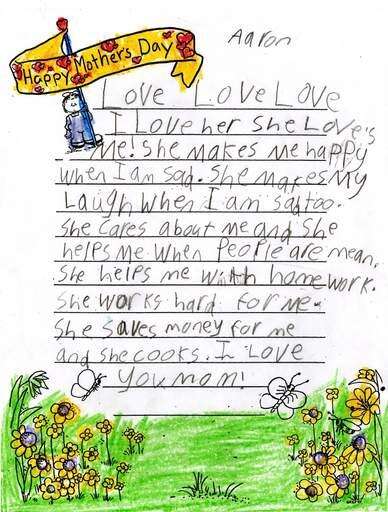 Aaron
Happy Mothers Day
Love Love Love
I Love her she Love's
me! she makes me happy
when I am sad. she makes my
Laugh when I am sad too.
she cares about me and she
helps me when people are mean.
she helps me with homework.
she works hard for me.
she saves money for me
and she cooks. I Love
you mom!